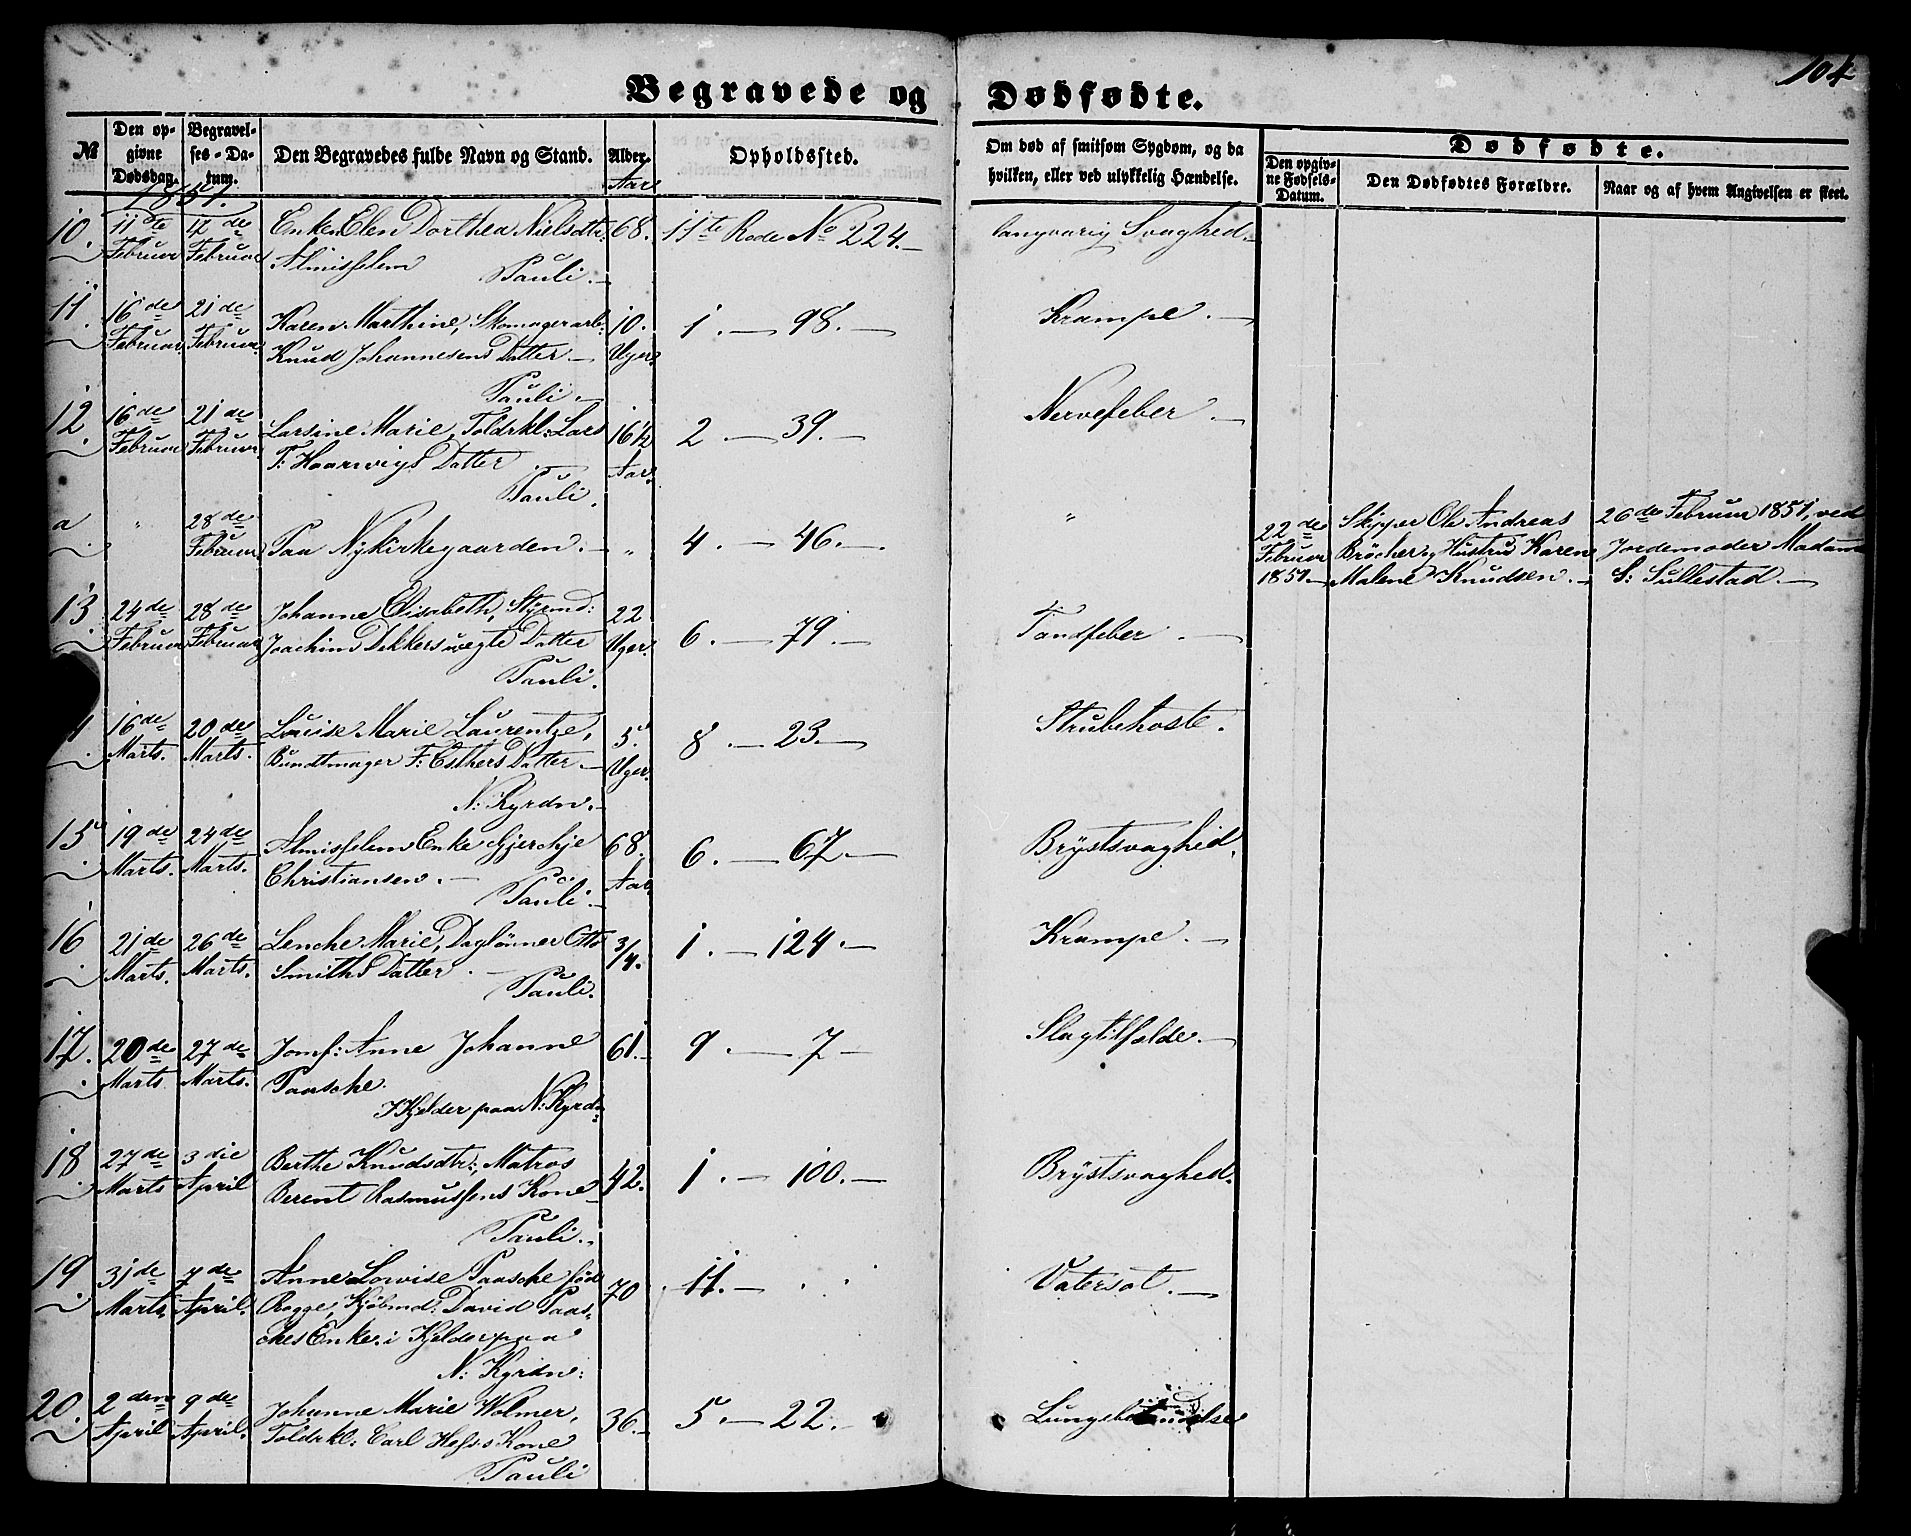 104
Begravede og Dødfødte.
№
Den opgivne Dødsdag.
Begravelses-Datum.
Den Begravedes fulde Navn og Stand.
Alder.
Opholdssted.
Om død af smitsom Sygdom, og da hvilken, eller ved ulykkelig Hændelse.
Dødfødte.
Den opgivne Fødsels-Datum.
Den Dødfødtes Forældre.
Naar og af hvem Angivelsen er skeet.
1851.
Aar
10. 11te 17de Enken Elen Dorthea Nielsdtr. 68. 11te Rode No 224.— langvarig Svaghed.—
Februar Februar Almisselem Pauli.—
11. 16de 21de Karen Marthine, Skomagerarb: 10. 1.— 98.— Krampe.—
Februar. Februar. Knud Johannesens Datter.— Uger.
Pauli.—
12. 16de 21de Larsine Marie, Toldrkl: Lars 16½ 2.— 39.— Nervefeber.—
Februar Februar. T: Haarwigs Datter. Aar.
Pauli.
a " 28de Februar Paa Nykirkegaarden.— " 4.— 46.— "
22de Februar 1851.—
Skipper Ole Andreas
Bröcher og Hustru Karen
Malene Knudsen.—
26de Februar 1851, ved
Jordemoder Madam
S: Sullestad.—
13. 24de 28de Johanne Elisabeth, Styrmd: 22 6.— 79.— Tandfeber.—
Februar Februar Joachim Dekkers uægte Datter Uger.
Pauli.
16de 20de Louise Marie Laurentze, 5. 8.— 23.— Strubehoste.
Marts. Marts. Bundtmager F: Esthers Datter.— Uger.
N: Kgrdn.—
15 19de 24de Almisselem Enke Gjerchje 68. 6.— 67.— Brÿstsvaghed.
Marts. Marts. Christiansen.— Aar.
Pauli.—
16 21de 26de Lenche Marie, Daglönner Otto 3/4. 1.— 124.— Krampe.—
Marts. Marts. Smiths Datter.—
Pauli.
17. 20de 27de Jomf: Anne Johanne 61.— 9.— 7— Slagtilfælde.—
Marts. Marts. Paasche.
I Kjelder paa N: Kgrd:
18 27de 3die Berthe Knudsdtr:, Matros 42. 1.— 100.— Brÿstsvaghed.
Marts April Berent Rasmussens Kone—
Pauli.
19 31de 7de Anne Lovise Paasche född 70 11.— Vatersot.—
Marts. April. Rogge, Kjöbmd: David Paas-
ches Enke. i Kjelder paa
N: Kgrdn:
20. 2den 9de Johanne Marie Wolmer, 36.— 5.— 22.— Lungebetændelse
April April. Toldrkl: Carl Hess's Kone
Pauli